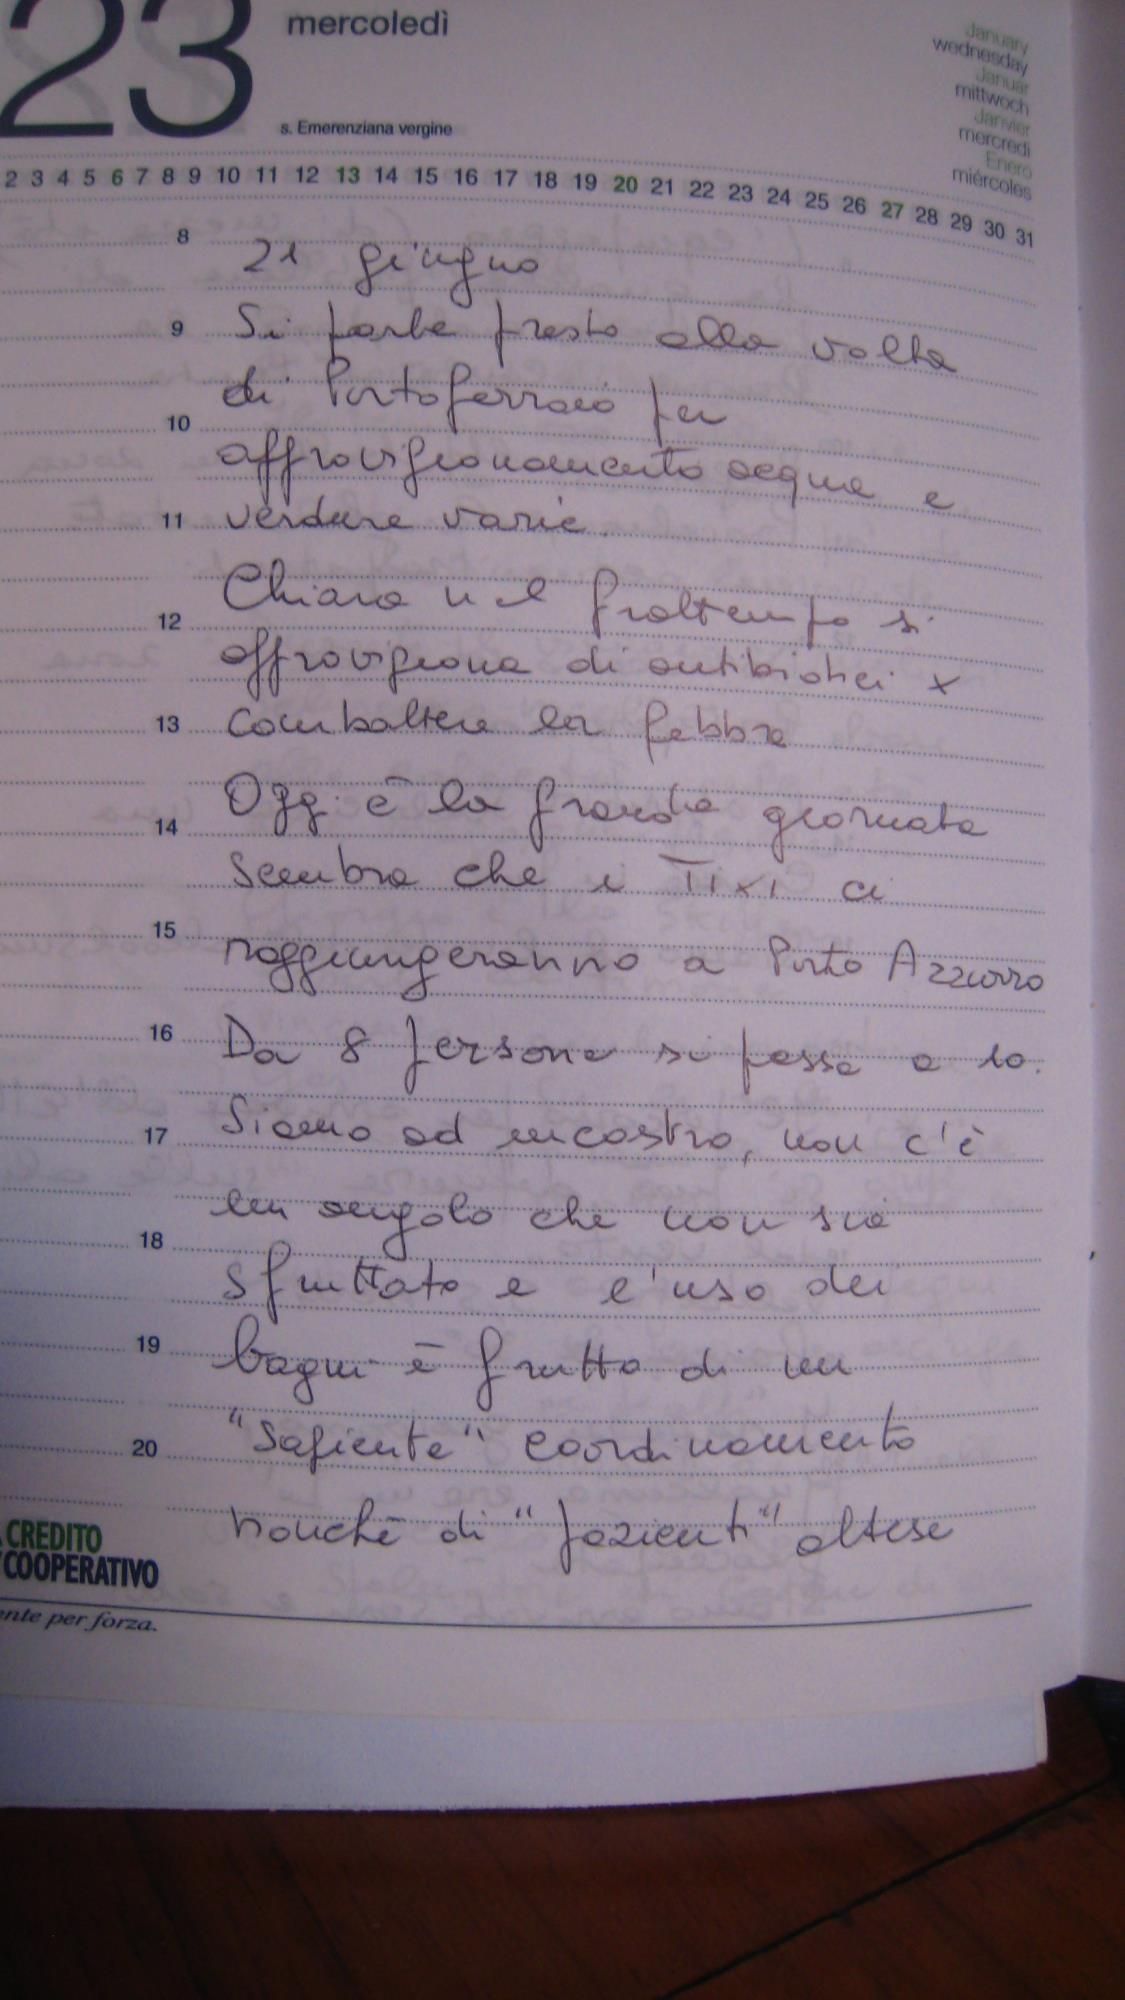 23
mercoledì
s. Emerenziana vergine
January
wednesday
Januar
mittwoch
Janvier
mercredi
Enero
miércoles
2 3 4 5 6 7 8 9 10 11 12 13 14 15 16 17 18 19 20 21 22 23 24 25 26 27 28 29 30 31
8
21 giugno
9
Si parte presto alla volta
di Portoferraio per
10
approvigionamento acqua e
11
verdure varie.
Chiara nel frattempo si
12
approvigiona di antibiotici x
13
combattere la febbre
Oggi è la grande giornata
14
sembra che i Tixi ci
15
raggiungeranno a Porto Azzurro
16
Da 8 persone si passa a 10.
17
Siamo ad incastro, non c'è
un angolo che non sia
18
sfruttato e l'uso dei
19
bagni è frutto di un
20
"sapiente" coordinamento
nonchè di "pazienti" attese
CREDITO
COOPERATIVO
ente per forza.